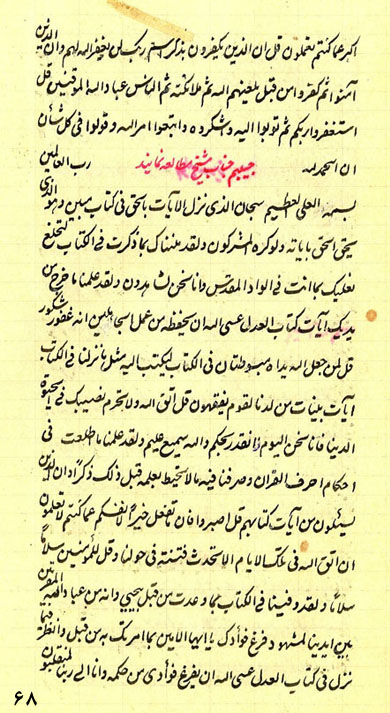 اکبر عما کنتم تعملون قل ان الذین یکفرون بذکر اسم ربک لن یغفر الله لهم وان الذین
آمنوا ثم کفروا من قبل یلعنهم الله ثم ملائکته ثم الناس عباد الله الموقنین قل
استغفروا ربکم ثم توبوا الیه وشکروه واتبعوا امر الله وقولوا فی کل شأن
ان الحمد لله رب العالمین جیبهم جناب شیخ مطالعه نمایند
بسم الله العلی العظیم سبحان الذی نزل الآیات بالحق فی کتاب مبین وهو الذی
یحق الحق بایاته ولو کره المشرکون ولقد بما ذکرت فی الکتاب
نعلیک بما انت فی الواد المقدس وانا نحن ولقد علمنا ما خرج من
یدیک آیات کتاب العدل عسی الله ان یحفظه من عمل الجاهلین انه غفور شکور
قل لمن جعل الله یداه مبسوطتان فی الکتاب لیکتب الیه مثل ما نزلنا فی الکتاب
آیات بینات من لدنا لقوم یفقهون قل اتق الله ولا تحرم نصیبک فی الحیوة
الدنیا فانا نحن الیوم والله سمیع علیم ولقد علمنا ما طلعت فی
احکام احرف القرآن وصرفنا فیه ما لا تحیط بعلمه قبل ذلک ذکرا وان الذین
سیئلون من آیات کتابهم قل اصبروا فان ما تفعل خیرا لانفسکم عما کنتم لا تعلمون
ان اتق الله فی تلک الایام الا تحدث فتنة فی حولنا وقل للمؤمنین سلاما
سلاما ولقد وفینا فی الکتاب بما وعدت من قبل وانه من عباد الله المقربین
بین ایدینا لمشهود وفرغ فؤادک یا ایها الامین بما امرتک به من قبل وانظر فیما
نزل فی کتاب العدل عسی الله ان یفرغ فؤادی من حکمه وانا الی ربنا لمنقلبون
۶۸